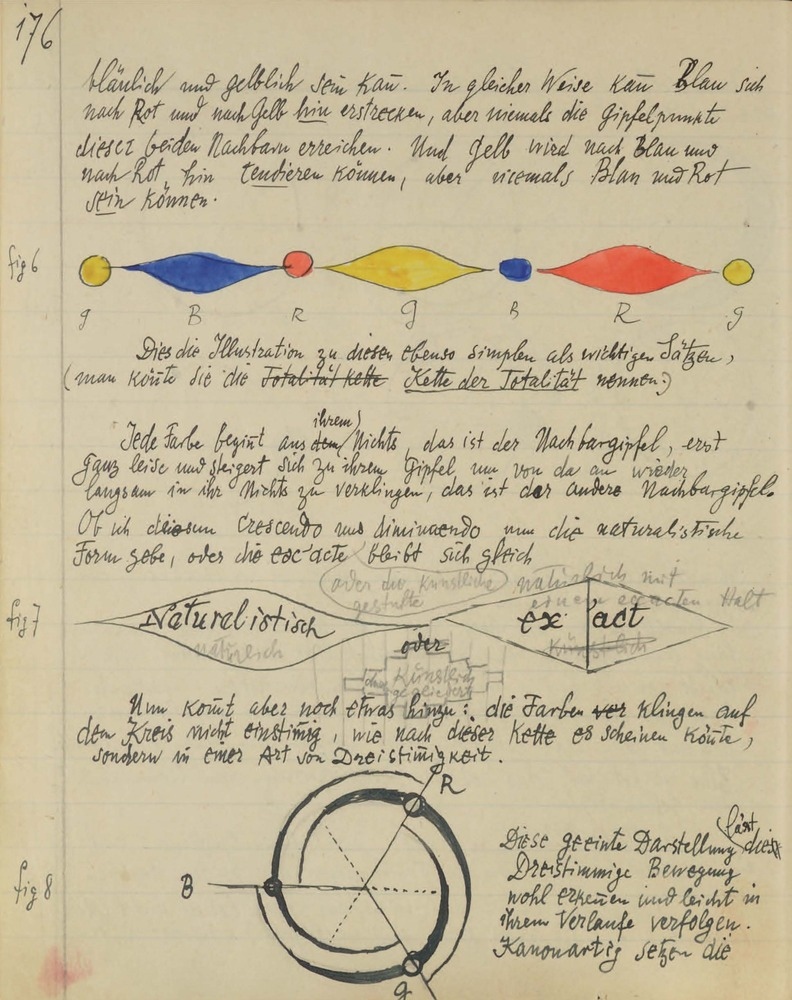 176
bläulich und gelblich sein kañ. In gleicher Weise kañ Blau sich
nach Rot und nach Gelb hin erstrecken, aber niemals die Gipfelpunkte
dieser beiden Nachbarn erreichen. Und Gelb wird nach Blau und
nach Rot hin tendieren können, aber niemals Blau und Rot
sein können.
fig 6
g B R g B R g
Dies die Illustration zu diesen ebenso simplen als wichtigen Sätzen,
(man könte sie die Totalität Kette Kette der Totalität nennen.)
ihrem
Jede Farbe begiñt aus dem Nichts, das ist der Nachbargipfel, erst
ganz leise und steigert sich zu ihrem Gipfel, um von da an wieder
langsam in ihr Nichts zu verklingen, das ist der andere Nachbargipfel.
Ob ich diesem Crescendo und diminuendo nun die naturalistische
Form gebe, oder die exacte bleibt sich gleich
oder die künstliche
gestufte
natürlich mit
einem exacten Halt
fig 7
Naturalistisch
oder
exact
natürlich
künstlich
künstlich
gegliedert
Nun komt aber noch etwas hinzu: die Farben ver klingen auf
dem Kreis nicht einstimig, wie nach dieser Kette es scheinen könte,
sondern in einer Art von Dreistimigkeit.
fig 8
R
B
g
Diese geeinte Darstellung läst die
Dreistimmige Bewegung
wohl erkenen und leicht in
ihrem Verlaufe verfolgen.
Kanonartig setzen die